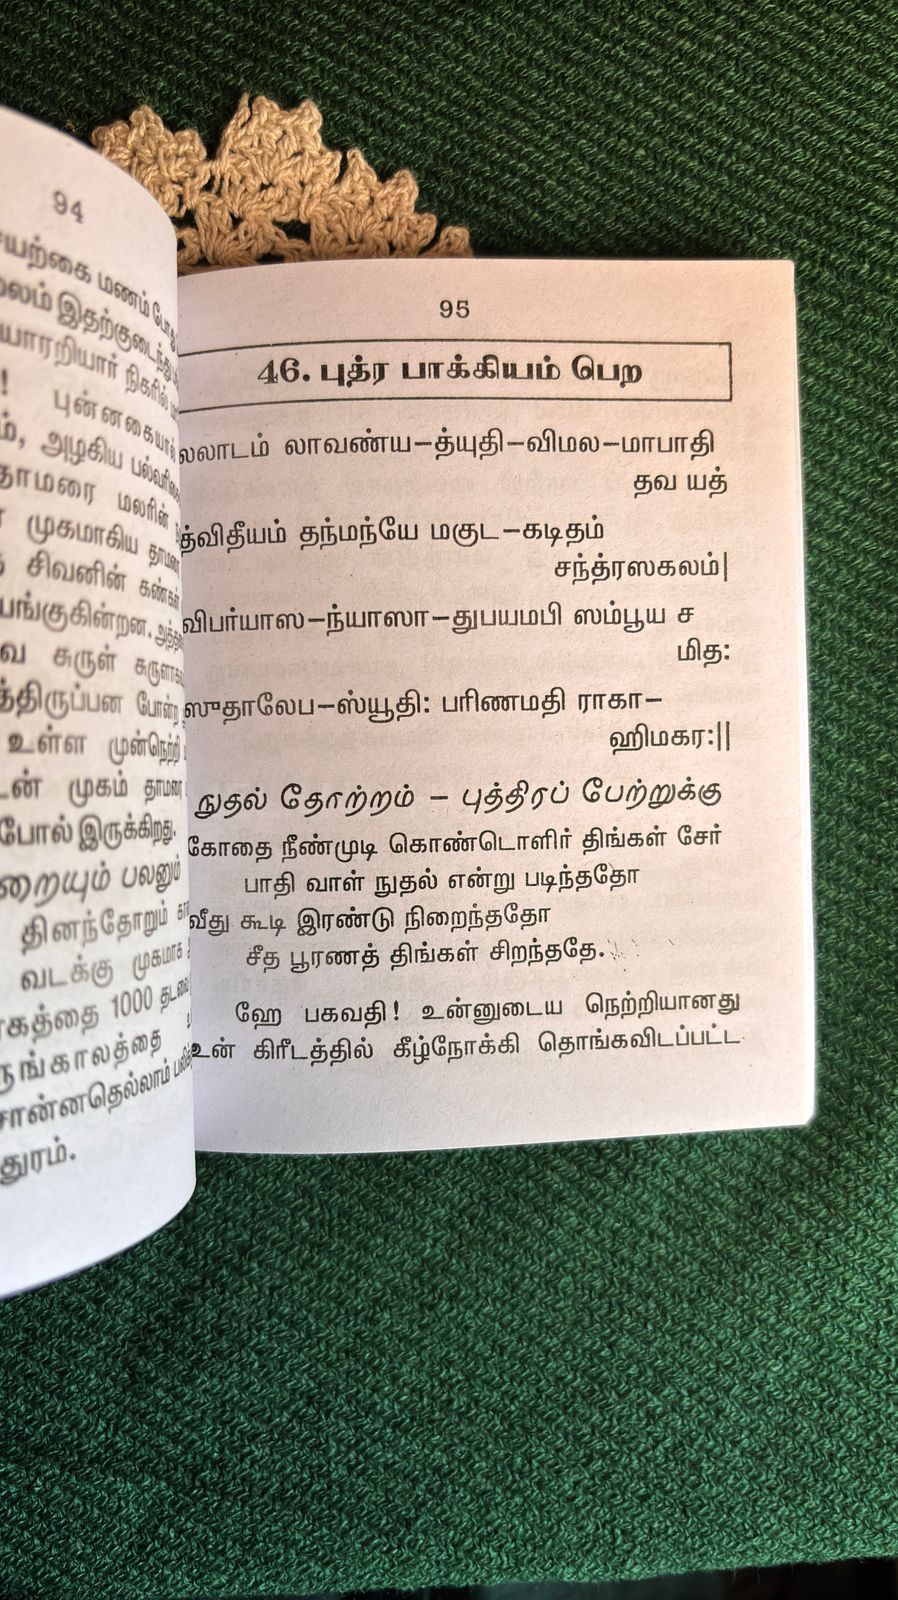 94
மணம் போது
இதற்குடைந்து
யாரறியார் நிகரில்
புன்னகையால்
அழகிய பல்வரிசை
தாமரை மலரின்
முகமாகிய தாமரை
சிவனின் கண்கள்
சுருள்
போன்று
உள்ள முன்நெற்றி
முகம் தாமரை
போல் இருக்கிறது.
பலனும்
தினந்தோறும்
வடக்கு முகமாக
1000
95
46. புத்ர பாக்கியம் பெற
லலாடம் லாவண்ய–த்யுதி–விமல–மாபாதி
தவ யத்
த்விதீயம் தன்மந்யே மகுட–கடிதம்
சந்த்ரஸகலம்|
விபர்யாஸ–ந்யாஸா–துபயமபி ஸம்பூய ச
மித:
ஸுதாலேப–ஸ்யூதி: பரிணமதி ராகா–
ஹிமகர:||
நுதல் தோற்றம் – புத்திரப் பேற்றுக்கு
கோதை நீண்முடி கொண்டொளிர் திங்கள் சேர்
பாதி வாள் நுதல் என்று படிந்ததோ
வீது கூடி இரண்டு நிறைந்ததோ
சீத பூரணத் திங்கள் சிறந்ததே.
ஹே பகவதி! உன்னுடைய நெற்றியானது
உன் கிரீடத்தில் கீழ்நோக்கி தொங்கவிடப்பட்ட